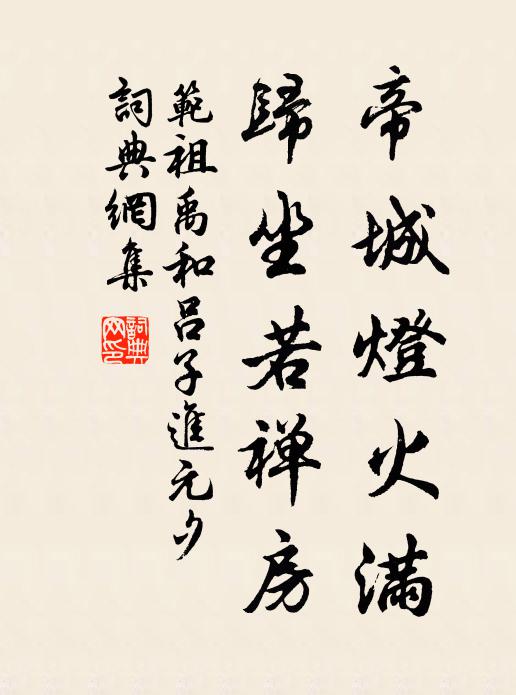 帝城燈火滿
歸坐若禅房
範祖禹和呂子進元夕
詞典網集
詞典网印